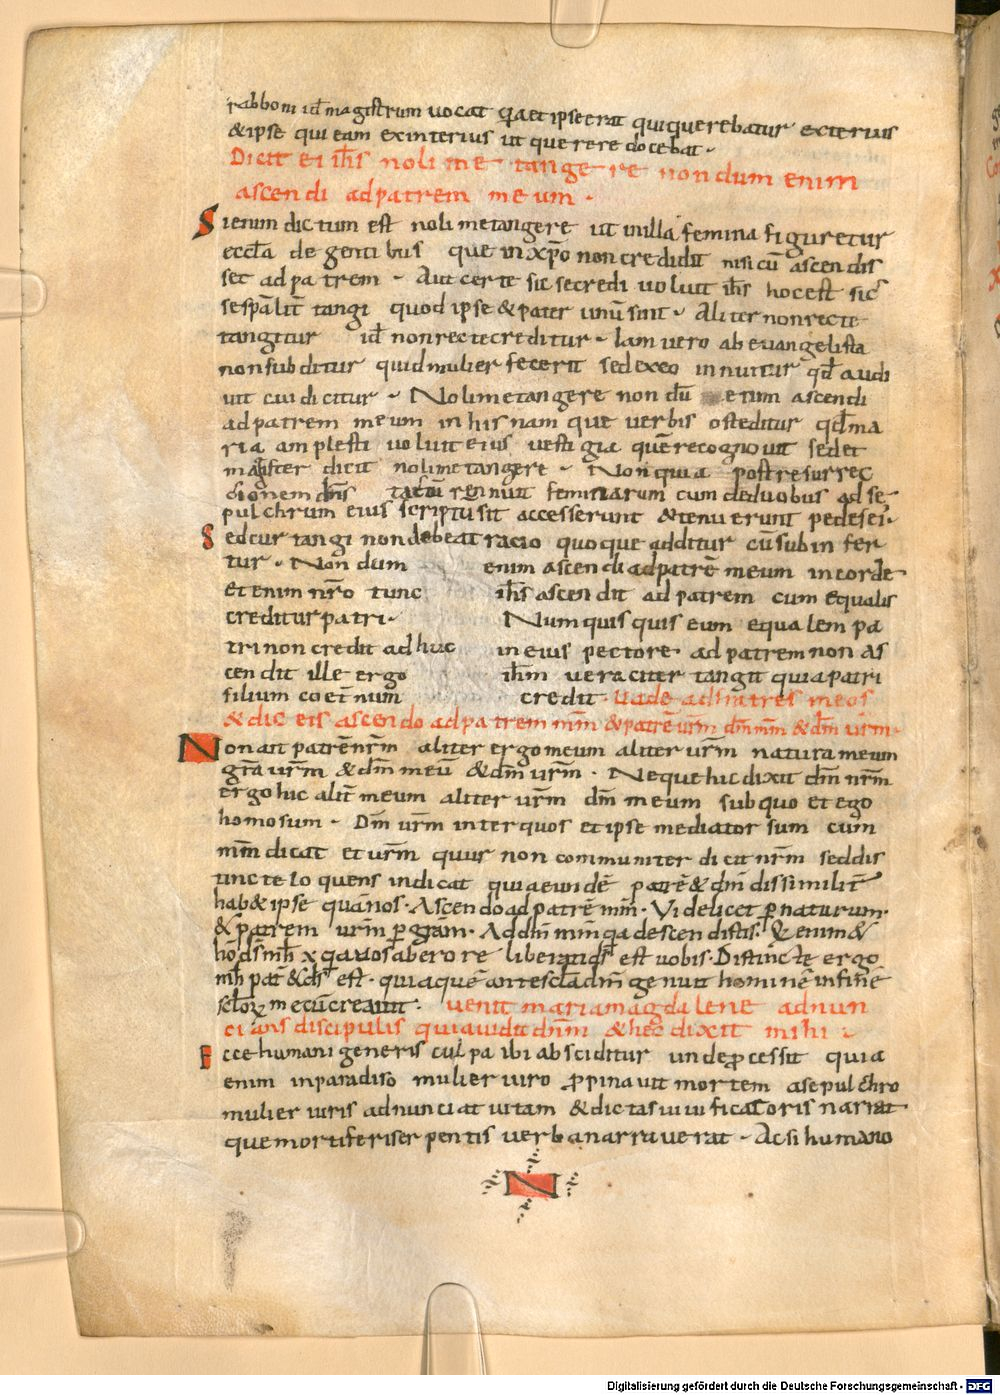 rabboni id̄ magistrum uocat q̄a et ipse erat qui querebatur exterius
& ipse qui eam exinterius ut querere docebat ·
Dicit ei ih̄s noli me tangere nondum enim
ascendi ad patrem meum ·
Si enim dictum est noli me tangere ut in illa femina figuretur
eccl̄a de gentibus que in xp̄o non credidit nisi cū ascendis
set ad patrem · Aut certe sic se credi uoluit ih̄s hoc est sic
se sp̄alit̄ tangi quod ipse & pater unū sint · Aliter non recte
tangitur id̄ non recte creditur · Iam uero ab euangelista
non subditur quid mulier fecerit sed ex eo innuitur qd̄ audi
uit cui dicitur · Noli me tangere non dū enim ascendi
ad patrem meum in his nam que uerbis osteditur qd̄ ma
ria amplesti uoluit eius uestigia quē recognouit sed et
magister dicit noli me tangere · Non quia post resurrec
cionem dn̄s tactū rennuit feminarum cum de duobus ad se
pulchrum eius scriptu sit accesserunt & tenuerunt pedes ei ·
Sed cur tangi non debeat racio quoque additur cū subinfer
tur · Non dum enim ascendi ad patrē meum in corde
et enim nr̄o tunc ih̄s ascendit ad patrem cum equalis
creditur patri · Nam quisquis eum equalem pa
tri non credit adhuc in eius pectore ad patrem non as
cendit ille ergo ih̄m ueraciter tangit quia patri
filium coet̄num credit · Uade ad fratres meos
& dic eis ascendo ad patrem mm̄ & patrē ur̄m dm̄ mm̄ & dm̄ ur̄m ·
Non ait patrē nr̄m aliter ergo meum aliter ur̄m natura meum
gr̄a ur̄m & dm̄ meū & dm̄ ur̄m · Neque hic dixit dm̄ nr̄m
ergo hic alit̄ meum aliter ur̄m dm̄ meum sub quo et ego
homo sum · Dm̄ ur̄m inter quos et ipse mediator sum cum
mm̄ dicat et ur̄m quur non communiter dicit nr̄m sed dis
tincte loquens indicat quia eundē patrē & dm̄ dissimilit̄
hab& ipse quā nos · Ascendo ad patrē mm̄ · Videlicet p̄ naturam ·
& patrem ur̄m p̄ gram · Ad dm̄ mm̄ q̄a descendistis ·
est uobis · Distincte ergo
pat̄ & ds̄ est · quia quē ante scl̄a dm̄ genuit hominē in finē
sclo᷒ mecū creauit · uenit maria magdalene adnun
cians discipulis quia uidit dnm̄ & hec dixit mihi ·
Ecce humani generis culpa ibi absciditur unde p̄cessit quia
enim in paradiso mulier uiro p̄pinauit mortem a sepulchro
mulier uiris adnunciat uitam & dicta sui uiuificatoris narrat
que mortiferi serpentis uerba narrauerat · Ac si humano
N
Digitalisierung gefördert durch die Deutsche Forschungsgemeinschaft - DFG